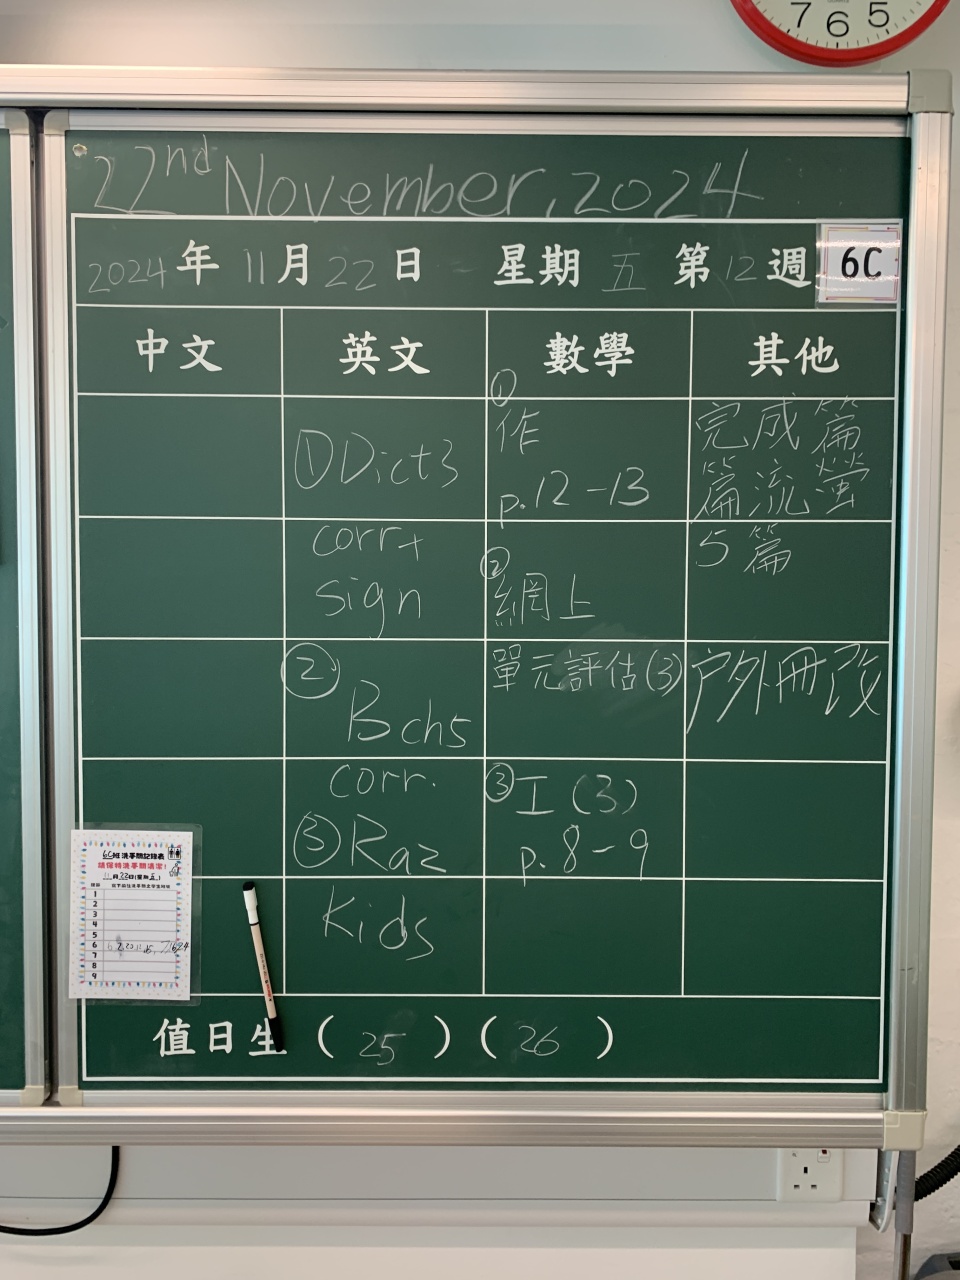 7 6 5
22nd November, 2024
2024年 11月22日 星期 五 第12週 6C
中文 英文 數學 其他
① Dict3
corr+
sign
② B ch5
corr.
③ Raz
Kids
①
作
p.12-13
②
網上
單元評估(3)
③ 工(3)
p.8-9
完成篇
篇流螢
5篇
戶外冊改
6C班洗手間記錄表
請保持洗手間清潔!
11月22日(星期五)
1
2
3
4
5
6
7
8
9
值日生 ( 25 ) ( 26 )